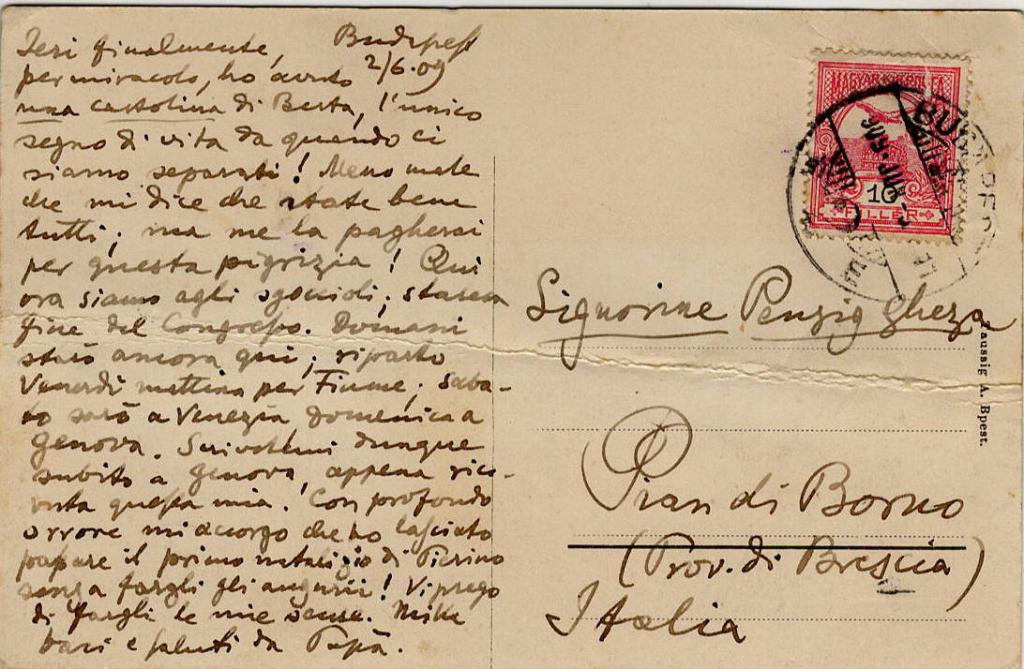 Budapest
2/6.09
Ieri finalmente,
per miracolo, ho avuto
una cartolina di Berta, l'unico
segno di vita da quando ci
siamo separati! Meno male
che mi dice che state bene
tutti; ma me la pagherai
per questa pigrizia! Qui
ora siamo agli sgoccioli; stasera
fine del Congresso. Domani
starò ancora qui; riparto
Venerdì mattina per Fiume; Saba-
to sarò a Venezia Domenica a
Genova. Scrivetemi dunque
subito a Genova, appena rice-
vuta questa mia. Con profondo
orrore mi accorgo che ho lasciato
passare il primo natalizio di Pierino
senza fargli gli auguri! Vi prego
di fargli le mie scuse. Mille
baci e saluti da Papà.
MAGYAR KIR. POSTA
10
FILLER
BUDAPEST
909 JUN
Signorine Penzig Gheza
Pian di Borno
(Prov. di Brescia)
Italia
Taussig A. Bpest.